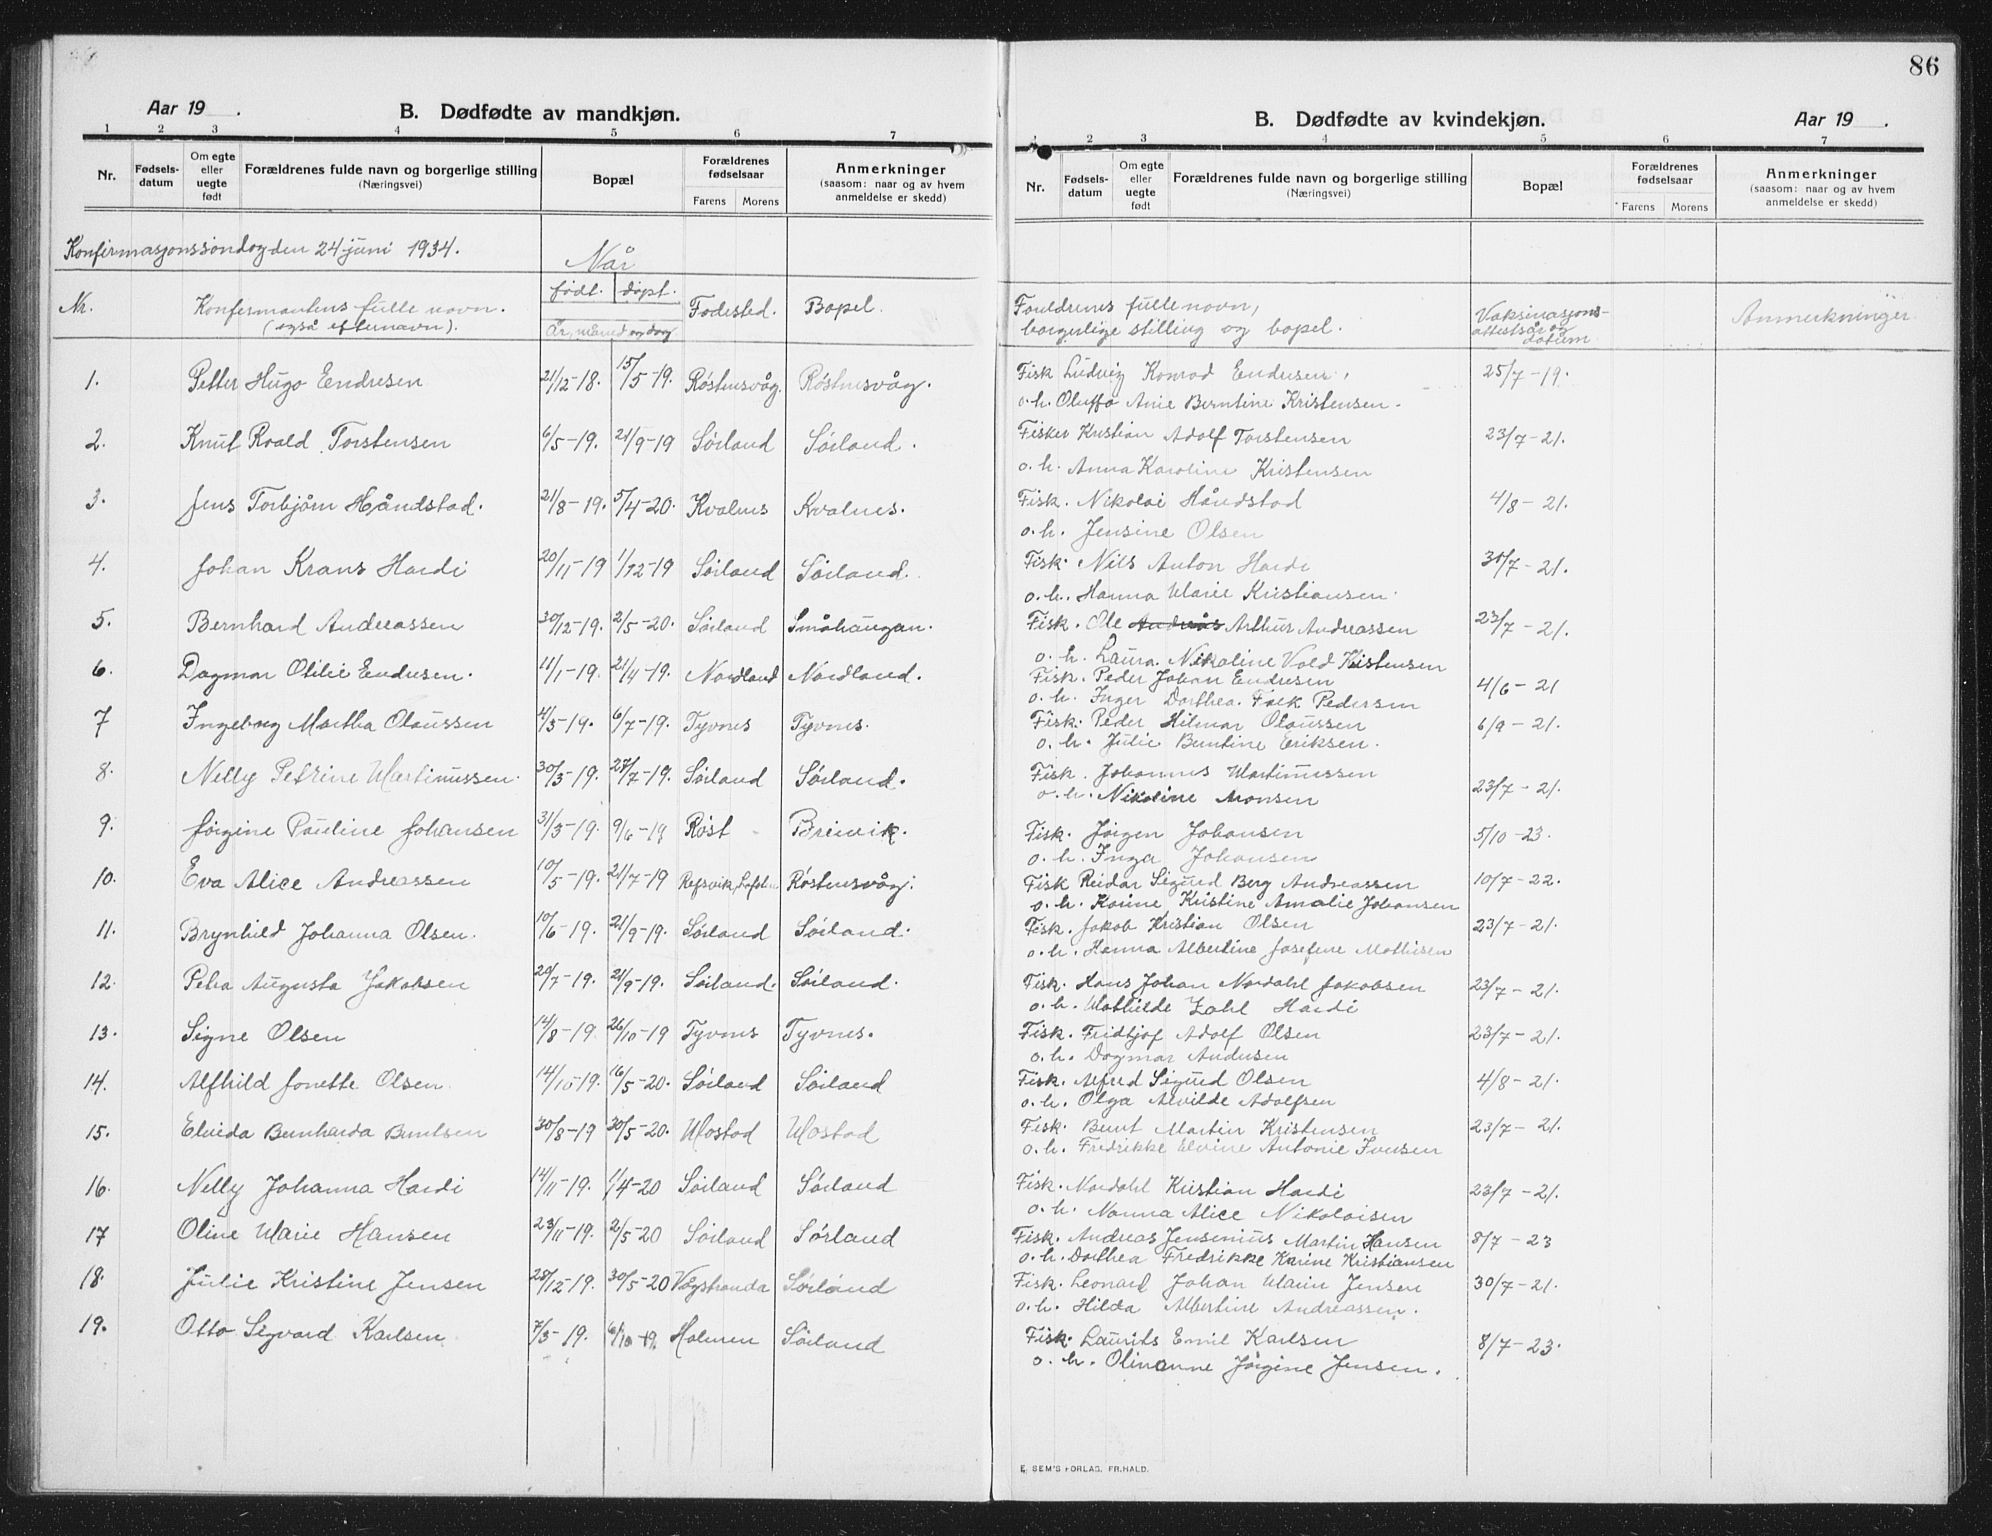 86
Aar 19 .
B. Dødfødte av mandkjøn.
1 2 3 4 5 6 7
Nr.
Fødsels-datum
Om egte eller uegte født
Forældrenes fulde navn og borgerlige stilling
(Næringsvei)
Bopæl
Forældrenes fødselsaar
Farens Morens
Anmerkninger
(saasom: naar og av hvem anmeldelse er skedd)
Konfirmasjonssöndag den 24 juni 1934.
Nr.
Konfermantens fulle navn.
(også efternavn).
Når
födt. döpt.
År, måned og dag
Födested.
Bopel.
1. Petter Hugo Endresen 21/12-18. 15/5-19. Röstnesvåg. Röstnesvåg.
2. Knut Roald Torstensen 6/5-19. 21/9-19 Sörland Sörland.
3. Jens Torbjörn Håndstad. 21/8-19. 5/4-20. Kvalnes Kvalnes.
4. Johan Krans Hardi 20/11-19 1/12-19 Sörland Sörland.
5. Bernhard Andreassen 30/12-19. 2/5-20. Sörland Småhaugan.
6. Dagmar Otilie Endresen. 11/1-19. 21/4-19. Nordland Nordland.
7 Ingeborg Martha Olaussen 4/3-19. 6/7-19. Tyvnes Tyvnes.
8. Nelly Petrine Martinussen. 30/3-19. 27/7-19. Sörland Sörland.
9. Jörgine Pauline Johansen 31/3-19. 9/6-19 Röst Breivik.
10. Eva Alice Andreassen 10/5-19. 21/7-19 Refsvik, Lofoten Röstnesvåg.
11. Brynhild Johanna Olsen. 10/6-19. 21/9-19. Sörland Sörland.
12. Petra Augusta Jakobsen 20/7-19. 21/9-19. Sörland. Sörland.
13. Signe Olsen 14/8-19. 26/10-19 Tyvnes Tyvnes.
14. Alfhild Jonette Olsen 14/10-19. 16/5-20. Sörland Sörland
15. Elvida Bernharda Berntsen 30/8-19 30/5-20. Mostad Mostad
16. Nelly Johanna Hardi 14/11-19. 1/4-20 Sörland Sörland
17 Oline Marie Hansen 23/11-19. 2/5-20 Sörland Sörland
18. Julie Kristine Jensen 28/12-19. 30/5-20 Vågstranda Sörland
19. Otto Sigvard Karlsen 7/3-19. 6/10-19. Holmen Sörland
B. Dødfødte av kvindekjøn.
Aar 19 .
1 2 3 4 5 6 7
Nr.
Fødsels-datum
Om egte eller uegte født
Forældrenes fulde navn og borgerlige stilling
(Næringsvei)
Bopæl
Forældrenes fødselsaar
Farens Morens
Anmerkninger
(saasom: naar og av hvem anmeldelse er skedd)
Foreldrenes fulle navn,
borgerlige stilling og bopel.
Vaksinasjons-
attestsår og
datum.
Anmerkninger.
Fisk Ludvig Konrad Endresen, 25/7-19.
o.h. Oluffa Anie Berntine Kristensen.
Fisker Kristian Adolf Torstensen 23/7-21.
o.h. Anna Karoline Kristensen
Fisk. Nikolai Håndstad 4/8-21.
o.h. Jensine Olsen
Fisk. Nils Anton Hardi 30/7-21.
o.h. Hanna Marie Kristiansen.
Fisk. Ole Andreas Arthur Andreassen 23/7-21.
o.h. Laura Nikoline Vold Kristensen
Fisk. Peder Johan Endresen 4/6-21
o.h. Inger Dorthea Falk Pedersen
Fisk. Peder Hilmar Olaussen 6/9-21.
o.h. Julie Berntine Eriksen.
Fisk. Johannes Martinussen
o.h. Nikoline Monsen 23/7-21.
Fisk. Jörgen Johansen 5/10-23.
o.h. Inga Johansen
Fisk Reidar Sigurd Berg Andreassen 10/7-22.
o.h. Karine Kristine Amalie Johansen
Fisk. Jakob Kristian Olsen 23/7-21.
o.h. Hanna Albertine Josefine Mathisen
Fisk. Hans Johan Nordahl Jakobsen 23/7-21.
o.h. Mathilde Zahl Hardi
Fisk. Fridtjof Adolf Olsen 23/7-21.
o.h. Dagmar Andersen
Fisk. Alfred Sigurd Olsen 4/8-21.
o.h. Olga Alvilde Adolfsen
Fisk. Bernt Martin Kristensen 23/7-21.
o.h. Fredrikke Elvine Antonie Iversen
Fisk. Nordahl Kristian Hardi 23/7-21.
o.h. Nanna Alice Nikolaisen
Fisk. Andreas Jensenius Martin Hansen 8/7-23
o.h. Dorthea Fredrikke Karine Kristiansen
Fisk. Leonard Johan Marin Jensen 30/7-21.
o.h. Hilda Albertine Andreassen.
Fisk. Laurits Emil Karlsen 8/7-23.
o.h. Olinanne Jörgine Jensen.
E. SEM'S FORLAG, FR.HALD.